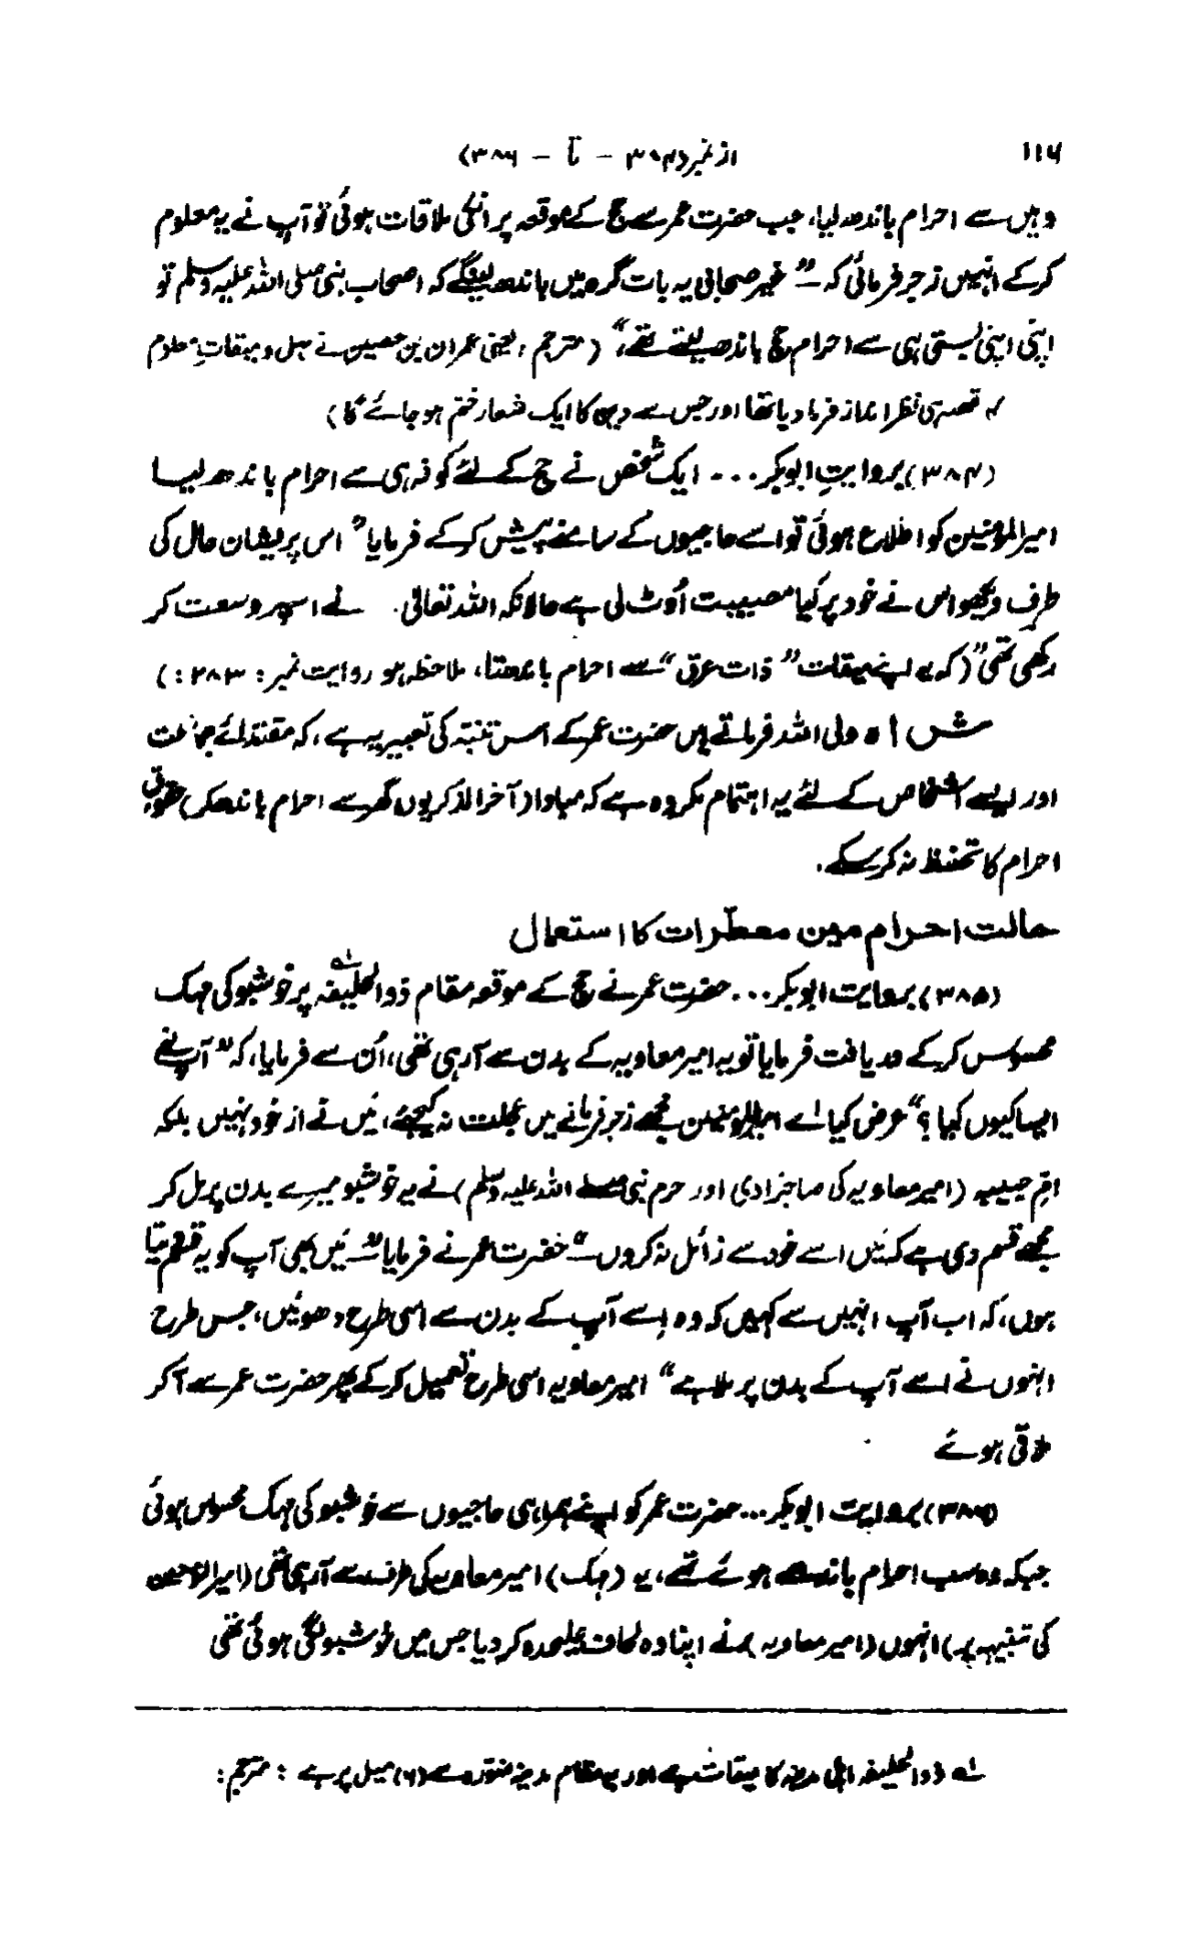 ۱۱۶
از نمبر (۳۸۴ – تا – ۳۸۶)
وہیں سے احرام باندھ لیا، جب حضرت عمر سے حج کے موقعہ پر انکی ملاقات ہوئی تو آپ نے یہ معلوم
کرکے انہیں زجر فرمائی کہ – ”غیر صحابی یہ بات گرہ میں باندھ لینگے کہ اصحاب نبی صلی اللہ علیہ وسلم تو
اپنی اپنی بستی ہی سے احرام حج باندھ لیتے تھے“، (مترجم، یعنی عمران بن حصین نے میقات معلوم
نظر انداز فرما دیا تھا اور جس سے دین کا ایک شعار ختم ہو جائے گا)
(۳۸۴) بروایتِ ابوبکر ... ایک شخص نے حج کے لئے کوفہ ہی سے احرام باندھ لیا
امیرالمومنین کو اطلاع ہوئی تو اسے حاجیوں کے سامنے پیش کرکے فرمایا ”اس پریشان حال کی
طرف دیکھو اس نے خود پر کیا مصیبت اوٹ لی ہے حالانکہ اللہ تعالیٰ نے اسپر وسعت کر
رکھی تھی“ (کہ یہ اپنے میقات ”ذات عرق“ سے احرام باندھتا، ملاحظہ ہو روایت نمبر: ۳۸۳:)
شاہ ولی اللہ فرماتے ہیں حضرت عمر کے اس تنبّہ کی تعبیر یہ ہے، کہ مقتدائے جماعت
اور ایسے اشخاص کے لئے یہ اہتمام مکروہ ہے کہ مبادا (آخرالذکر یوں گھر سے احرام باندھکر) حقوقِ
احرام کا تحفظ نہ کرسکے.
حالت احرام میں معطّرات کا استعمال
(۳۸۵) بروایت ابوبکر... حضرت عمر نے حج کے موقعہ مقام ذوالحلیفہ ؎۱ پر خوشبو کی مہک
محسوس کرکے دریافت فرمایا تو یہ امیر معاویہ کے بدن سے آرہی تھی، اُن سے فرمایا، کہ ”آپ نے
ایسا کیوں کیا؟“ عرض کیا اے امیرالمومنین مجھے زجر فرمانے میں عجلت نہ کیجئے، میں نے از خود نہیں بلکہ
امّ حبیبہ (امیر معاویہ کی صاحبزادی اور حرم نبی صلے اللہ علیہ وسلم) نے یہ خوشبو میرے بدن پر مل کر
مجھے قسم دی ہے کہ میں اسے خود سے زائل نہ کروں“ حضرت عمر نے فرمایا ”میں بھی آپ کو یہ قسم دیتا
ہوں، کہ اب آپ انہیں سے کہیں کہ وہ اسے آپ کے بدن سے اسی طرح دھوئیں، جس طرح
انہوں نے اسے آپ کے بدن پر ملا ہے“ امیر معاویہ اسی طرح تعمیل کرکے پھر حضرت عمر سے آکر
ملاقی ہوئے
(۳۸۶) بروایت ابوبکر... حضرت عمر کو اپنے ہمراہی حاجیوں سے خوشبو کی مہک محسوس ہوئی
جبکہ وہ سب احرام باندھے ہوئے تھے، یہ (مہک) امیر معاویہ کی طرف سے آرہی تھی (امیرالمومنین
کی تنبیہہ پر) انہوں (امیر معاویہ) نے اپنا وہ لحاف علیحدہ کردیا جس میں خوشبو لگی ہوئی تھی
؎۱ ذوالحلیفہ اہل مدینہ کا میقات ہے اور یہ مقام مدینہ منوّرہ سے (۶) میل پر ہے : مترجم: